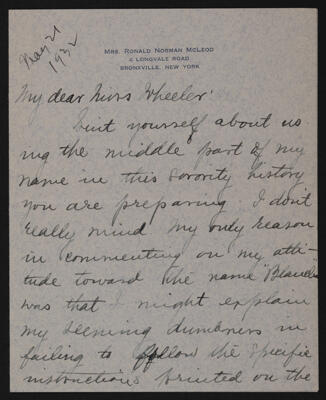 May 21
1932
MRS. RONALD NORMAN MCLEOD
4 LONGVALE ROAD
BRONXVILLE, NEW YORK
My dear Miss Wheeler:
Suit yourself about us
ing the middle part of my
name in this sorority history
you are preparing. I don't
really mind. My only reason
in commenting on my atti-
tude toward the name "Blanche"
was that I might explain
my seeming dumbness in
failing to follow the specific
instructions printed on the